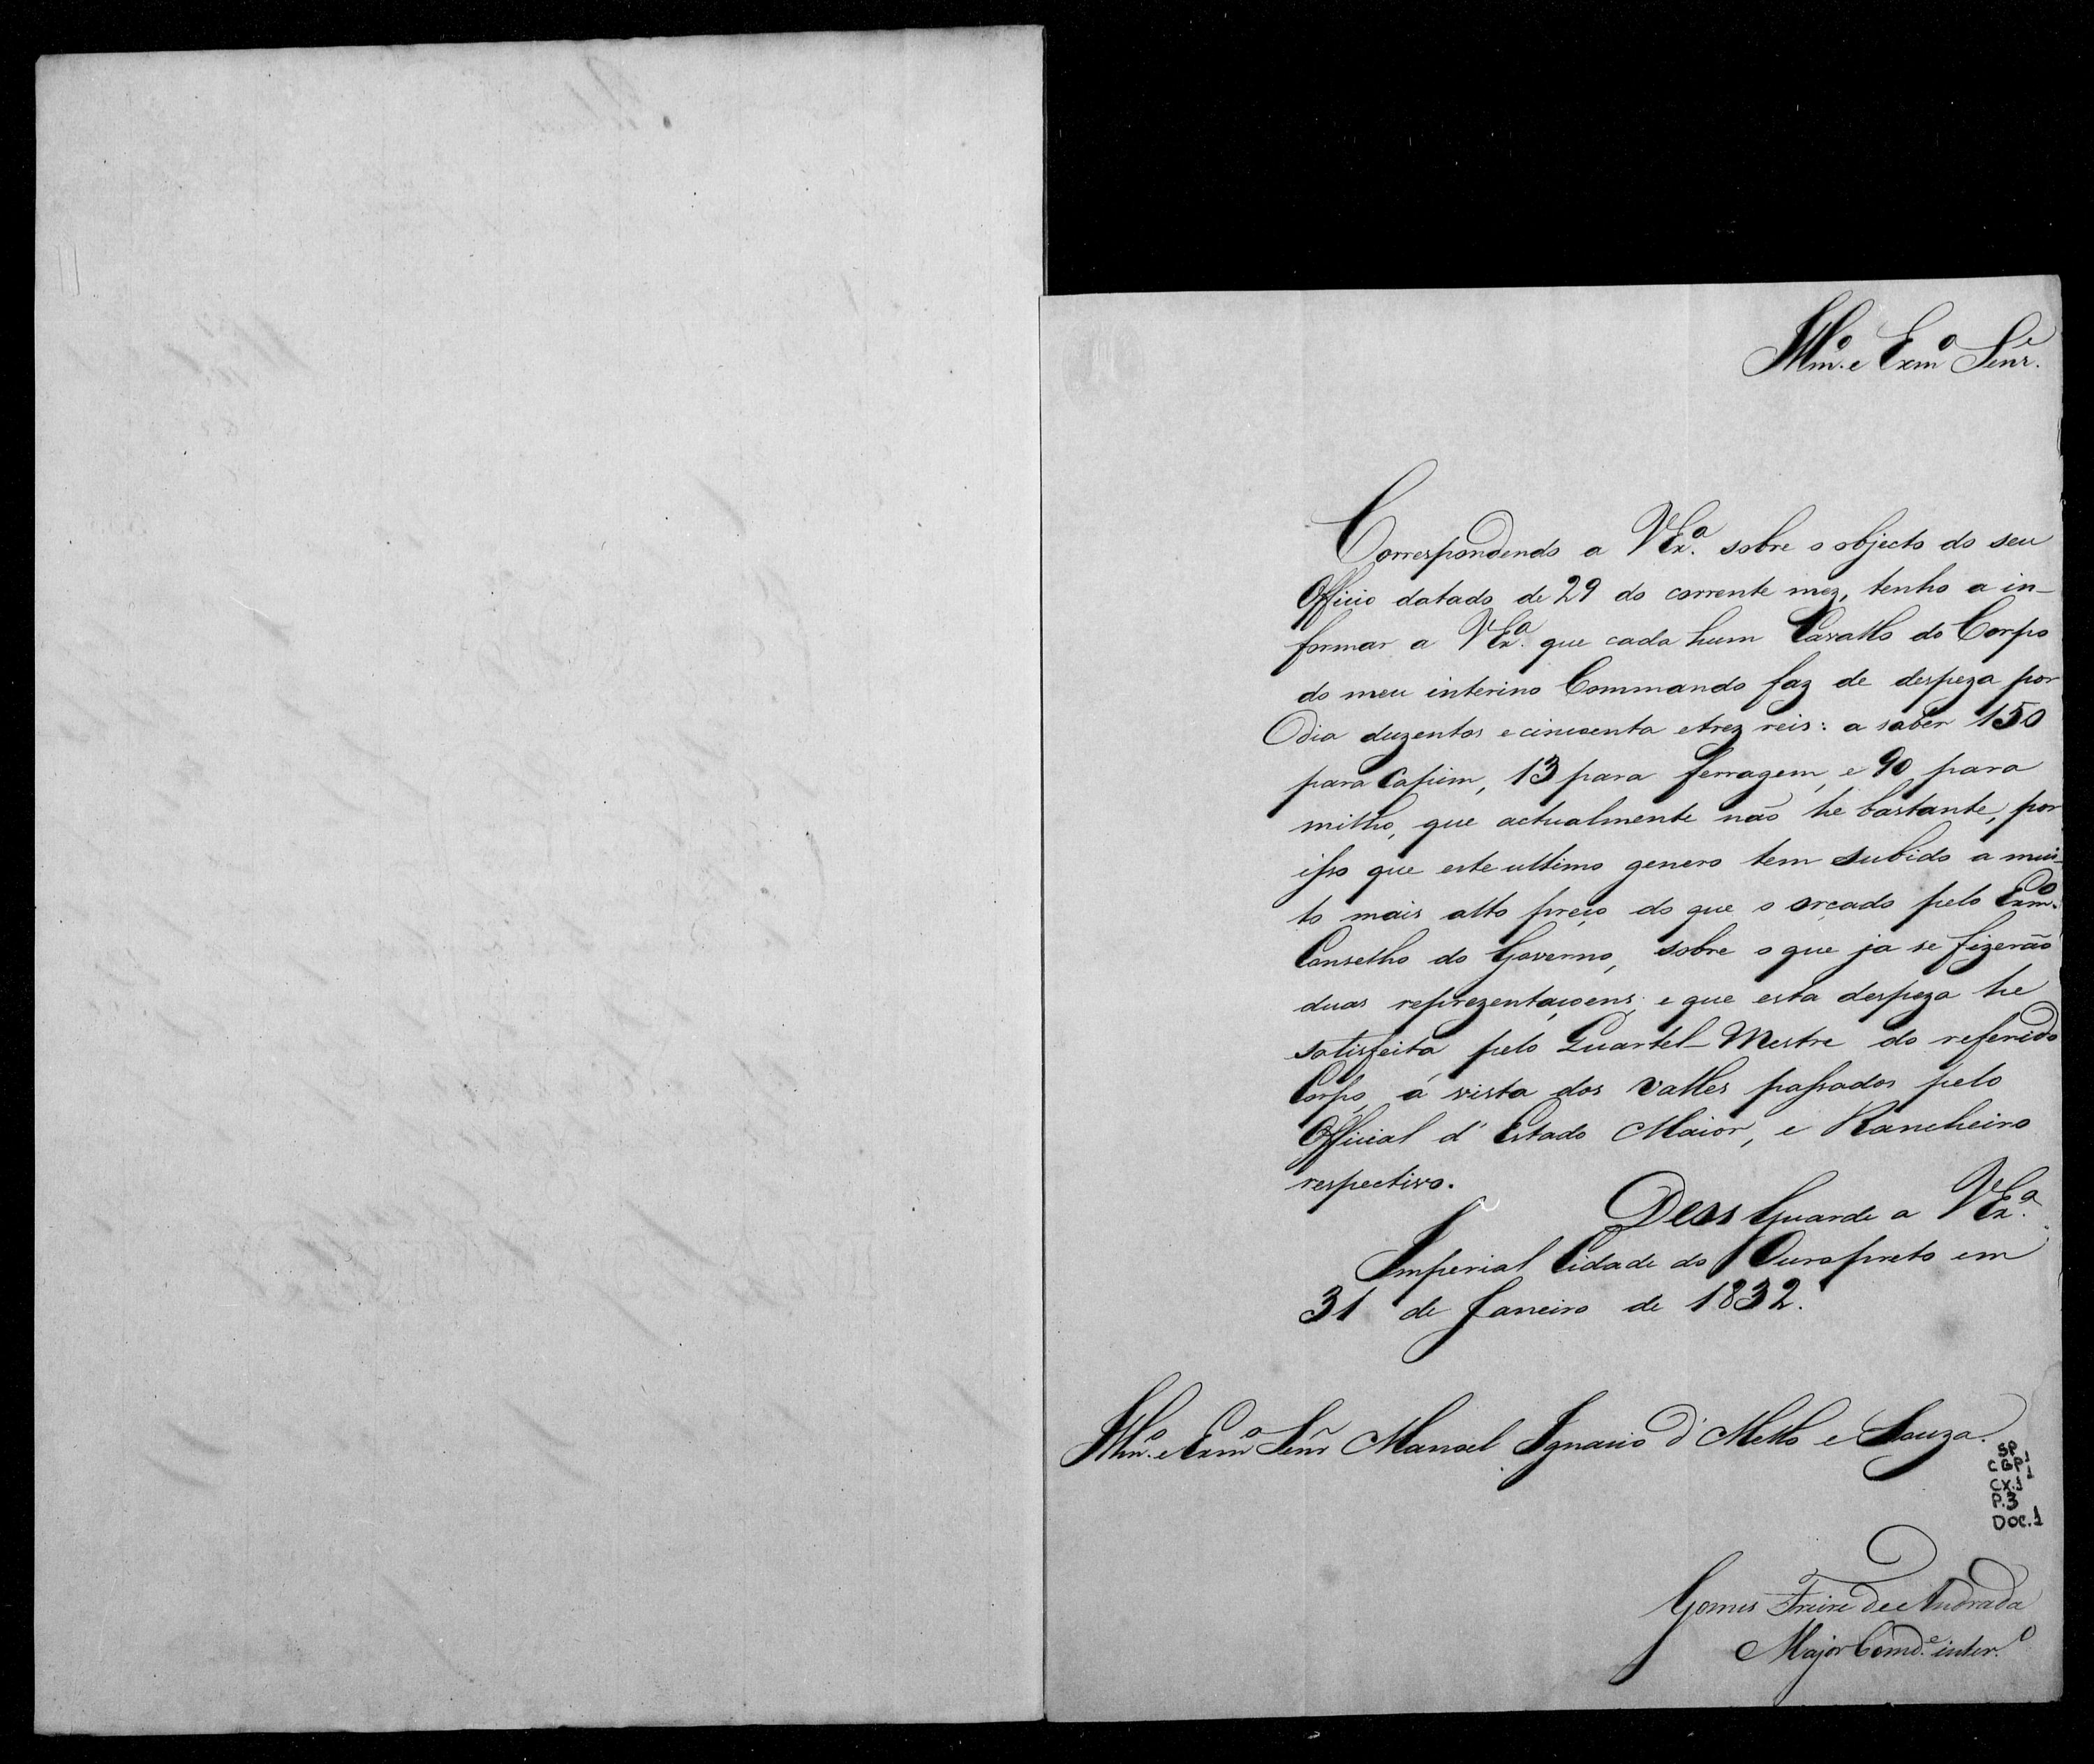 Illm.º e Exmº Senr.e
Correspondendo a VExª. sobre o objecto do seu
Officio datado de 29 do corrente mez, tenho a in-
formar a VExª. que cada hum Cavallo do Corpo
do meu interino Commando faz de despeza por
dia duzentos e cincoenta e trez reis: a saber 150
para Capim, 13 para ferragem, e 90 para
milho, que actualmente não he bastante, por
isso que este ultimo genero tem subido a mui-
to mais alto preço do que o orçado pelo Exmº.
Conselho do Governo, sobre o que ja se fizerão
duas reprezentaçoens; e que esta despeza he
satisfeita pelo Quartel-Mestre do referido
Corpo, á vista dos valles passados pelo
Official d'Estado Maior, e Rancheiro
respectivo.
Deos Guarde a VExª.
Imperial Cidade do Ouro preto em
31 de Janeiro de 1832.
Illm.º e Exmº Senr Manoel Ignacio d'Mello e Souza.
SP
PP 1
CX.3
P.3
Doc.1
Gomes Freire de Andrada
Major Comd.e inter.º